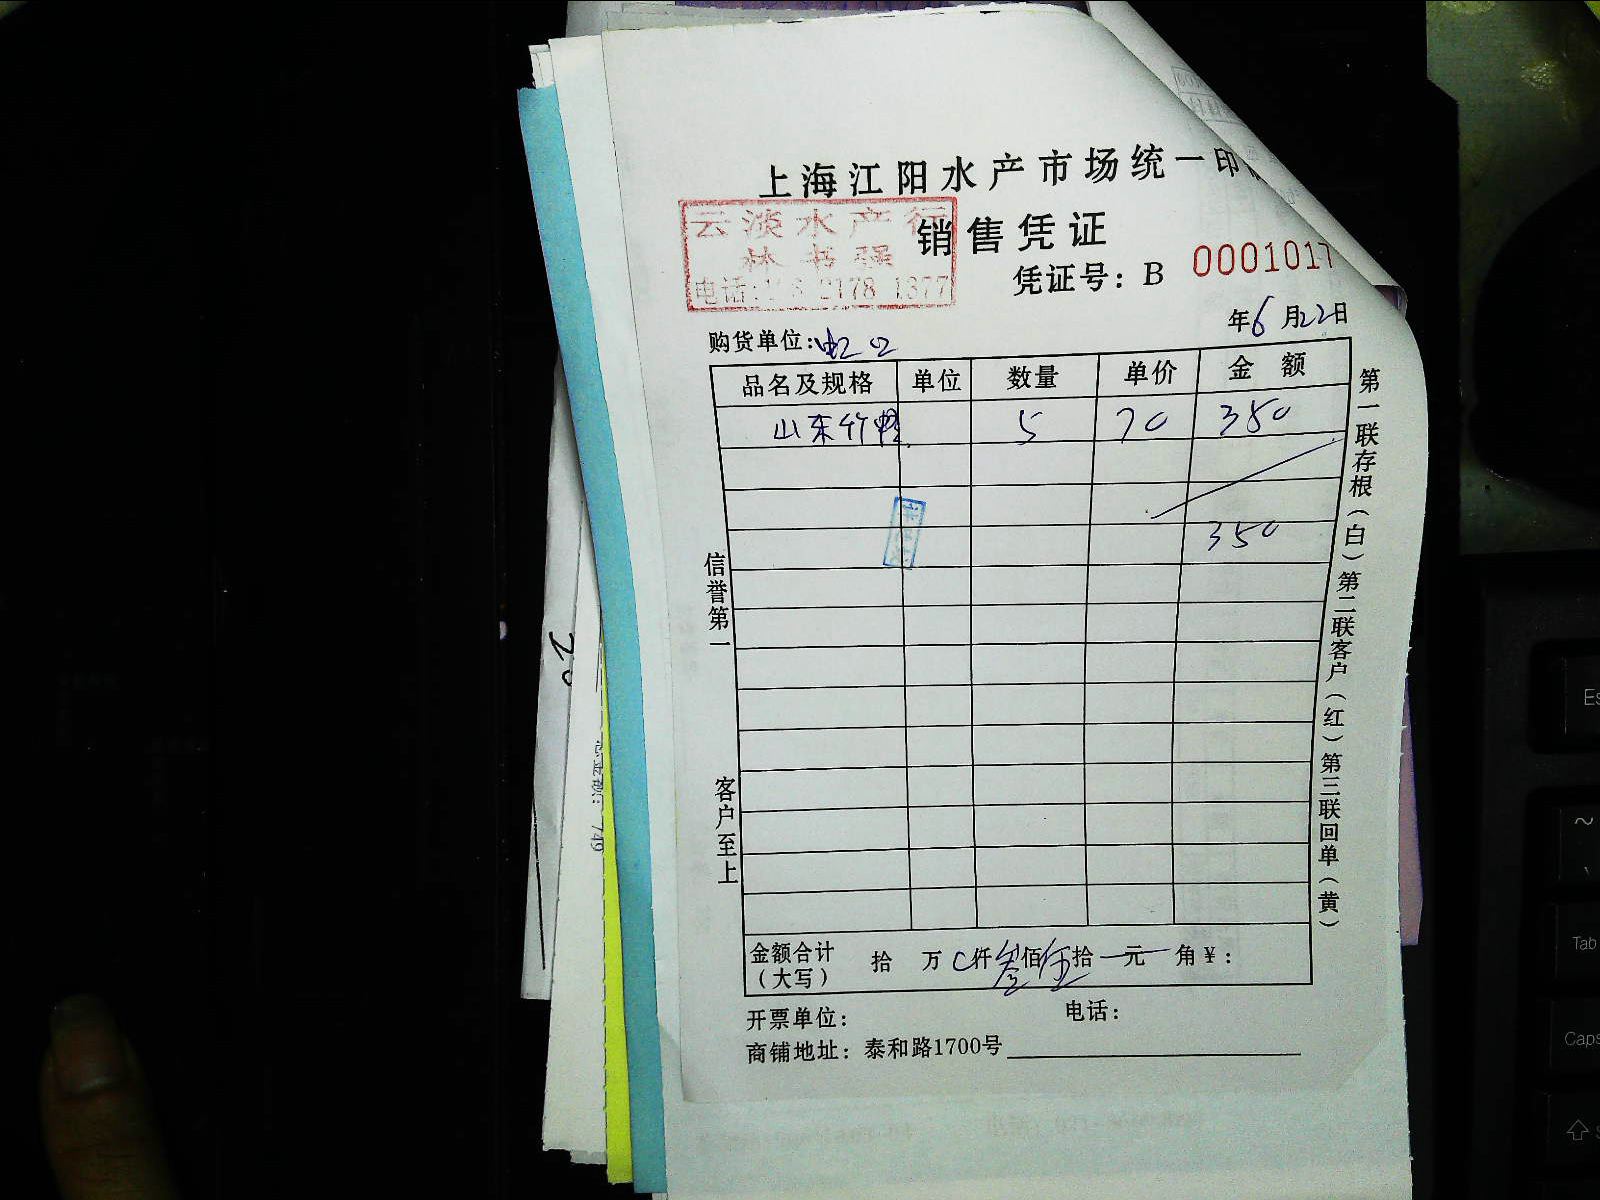 上海江阳水产市场统一印
云淡水产行
林书强
销售凭证
凭证号：B 0001017
年6月22日
购货单位：虹口
品名及规格 单位 数量 单价 金额
山东竹蛏 5 70 350
350
信誉第一
客户至上
第一联存根（白）第二联客户（红）第三联回单（黄）
金额合计（大写） 拾 万 仟叁佰伍拾 元 角￥：
开票单位： 电话：
商铺地址：泰和路1700号
总金额：749
Tab
Caps